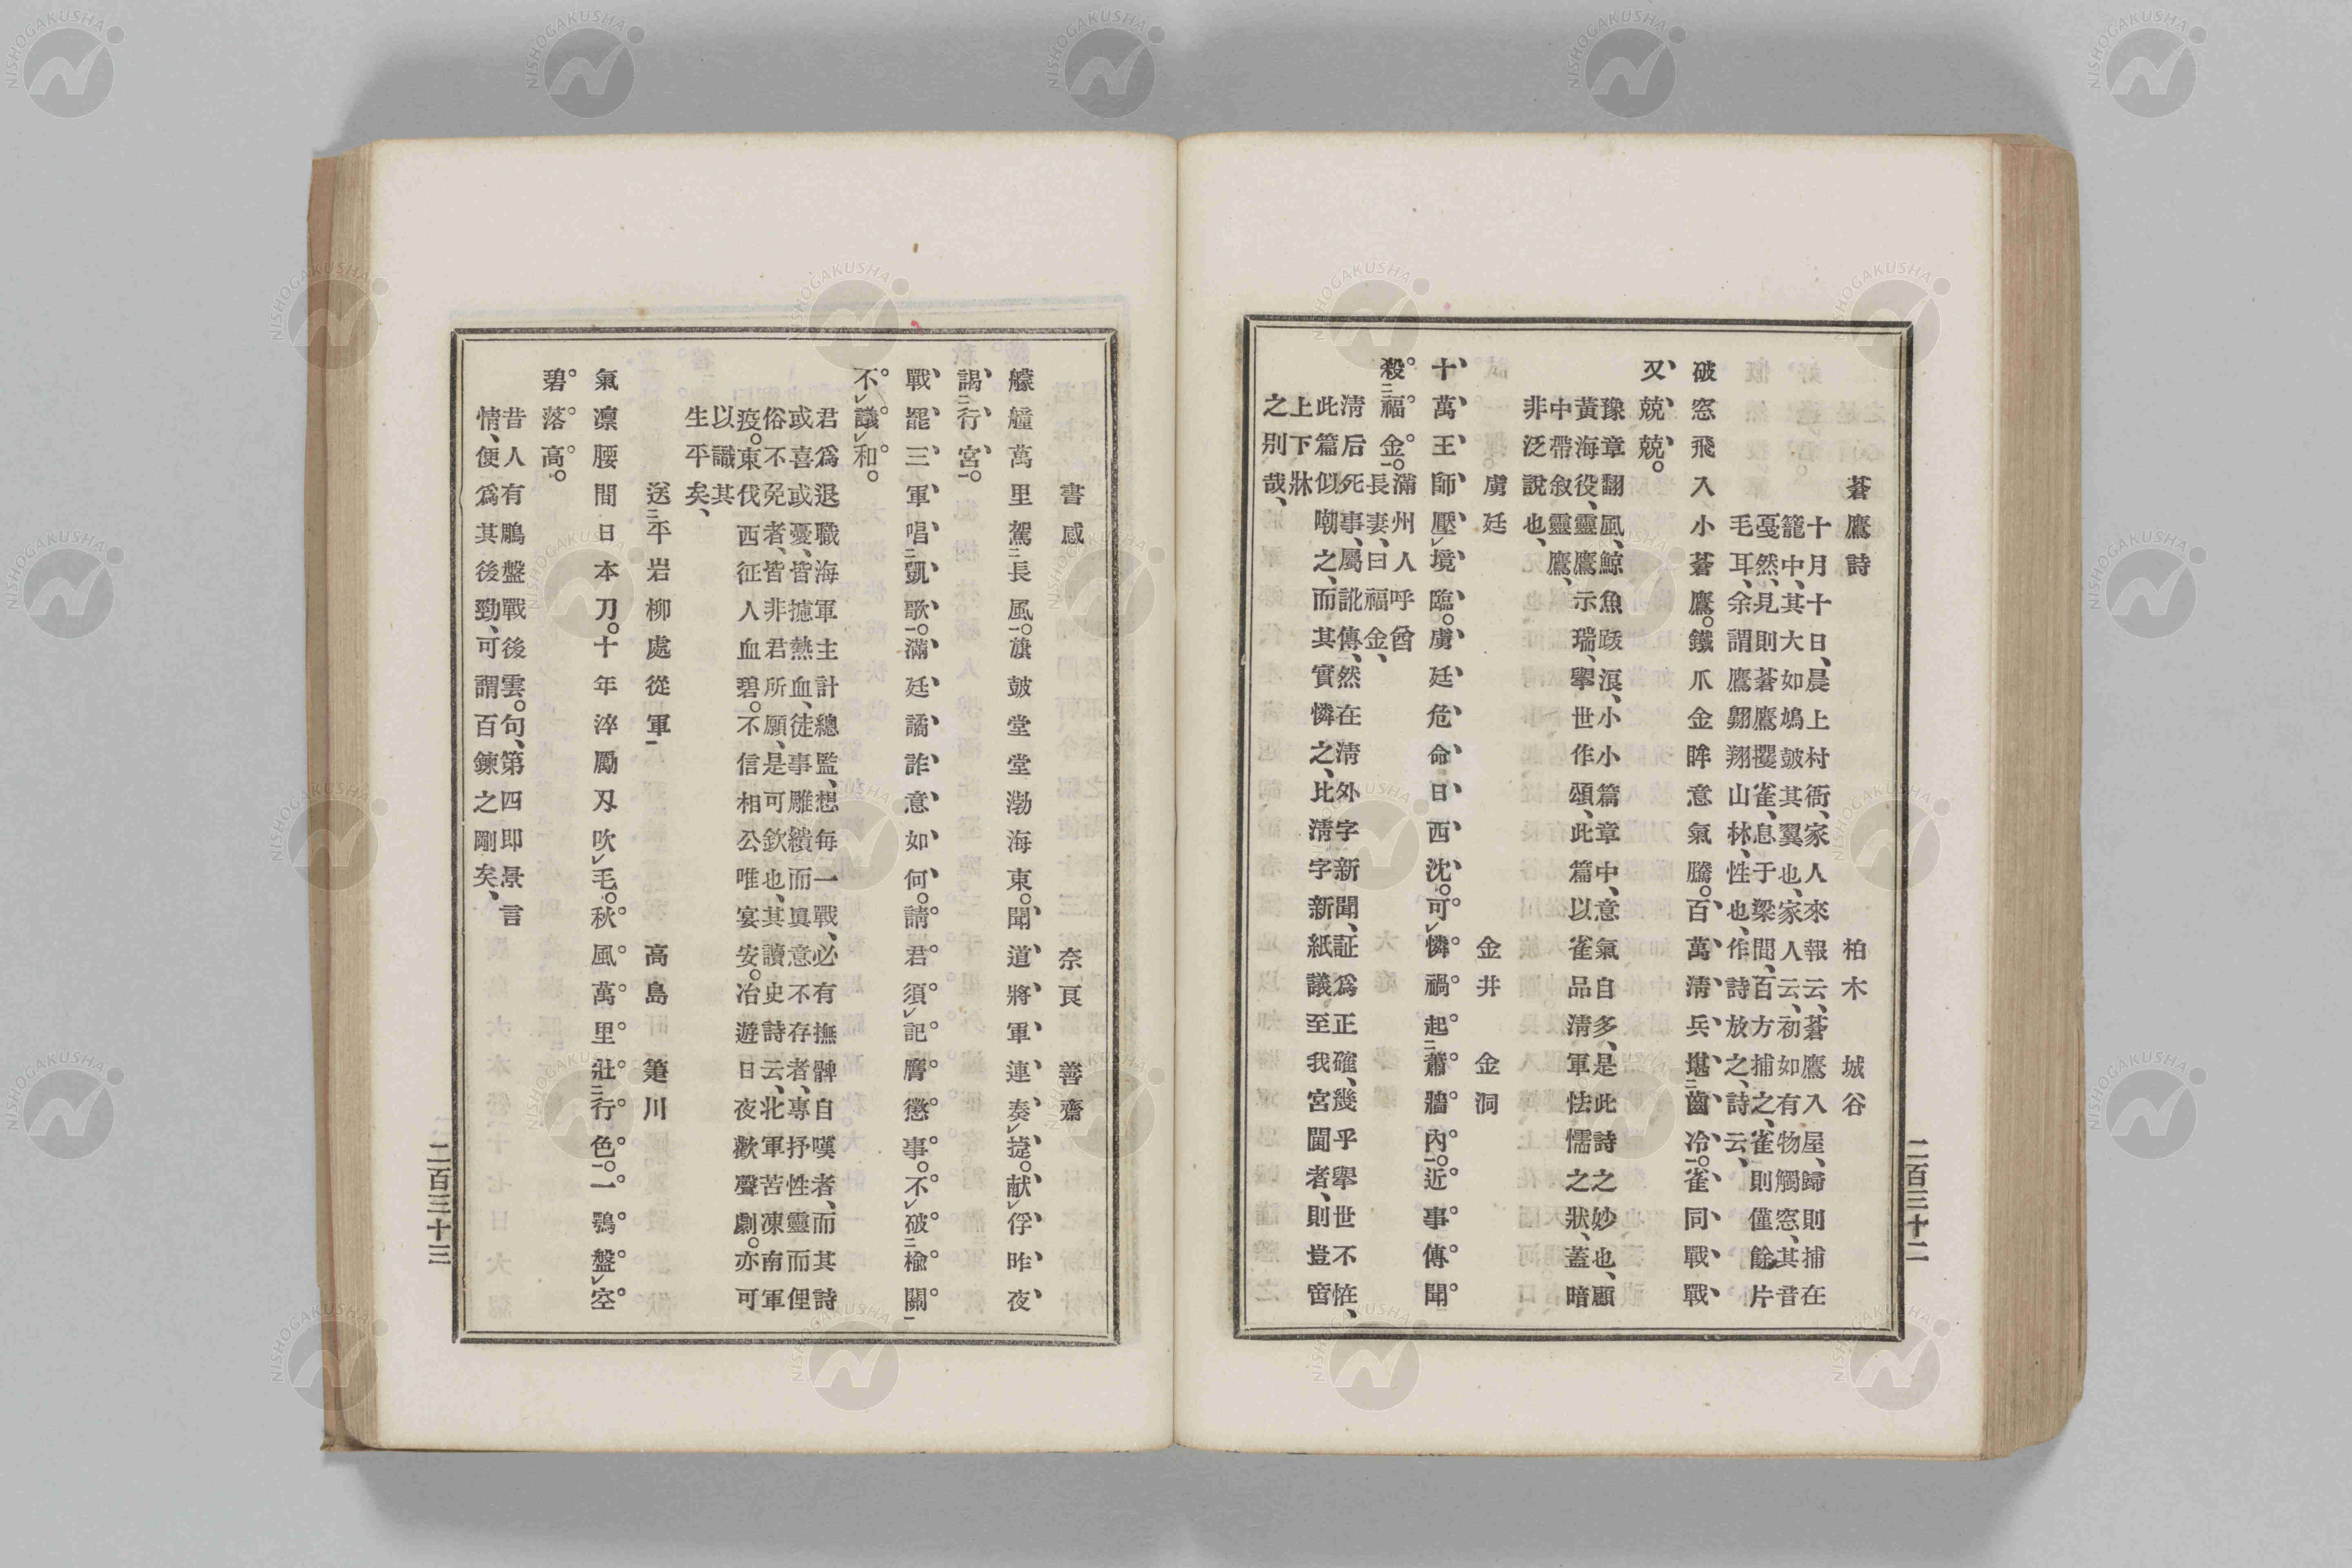 蒼鷹詩　柏木城谷
十月十日、晨上村衙、家人來報云、蒼鷹入屋、歸則捕在
籠中、其大如鳩皷其翼也、家人云、初如有物觸窓、其音
戞然、見則蒼鷹攫雀、息于梁間、百方捕之、雀則僅餘片
毛耳、余謂鷹翺翔山林、性也、作詩放之、詩云、
破窓飛入小蒼鷹。鐵爪金眸意氣騰。百萬淸兵堪二齒冷一。雀同戰戰
又兢兢。
豫章翻風、鯨魚跋浪、小小篇章中、意氣自多、是此詩之妙也、顧
黃海役、靈鷹示瑞、擧世作頌、此篇以雀品淸軍怯懦之狀、蓋暗
中帶敘靈鷹、
非泛說也、
虜廷　金井金洞
十萬王師壓レ境臨。虜廷危命日西沈。可レ憐禍起二蕭牆內一。近事傳聞
殺二福金一。
滿州人呼酋
長妻、曰福金、
淸后死事、屬訛傳、然在淸外字新聞、証爲正確、幾乎擧世不恠、
此篇似嘲之、而其實憐之、比淸字新紙議至我宮闈者、則豈啻
上下牀
之別哉、
二百三十二
書感　奈良善齋
艨艟萬里駕二長風一。旗皷堂堂渤海東。聞道將軍連奏レ捷。献レ俘昨夜
謁二行宮一。
戰罷三軍唱二凱歌一。滿廷譎詐意如何。請君須レ記膺懲事。不レ破二楡關一
不レ議レ和。
君爲退職海軍主計總監、想每一戰、必有撫髀自嘆者、而其詩
或喜或憂、皆攄熱血、徒事雕繢而眞意不存者、專抒性靈而俚
俗不免者、皆非君所願、是可欽也、其讀史詩云、北軍苦凍南軍
疫。東伐西征人血碧。不信相公唯宴安。冶遊日夜歡聲劇。亦可
以識其
生平矣、
送二平岩柳處從軍一　高島箑川
氣凛腰間日本刀。十年淬勵刄吹レ毛。秋風萬里壯二行色一。一鶚盤レ空
碧落高。
昔人有鵰盤戰後雲。句、第四即景言
情、便爲其後勁、可謂百鍊之剛矣、
二百三十三